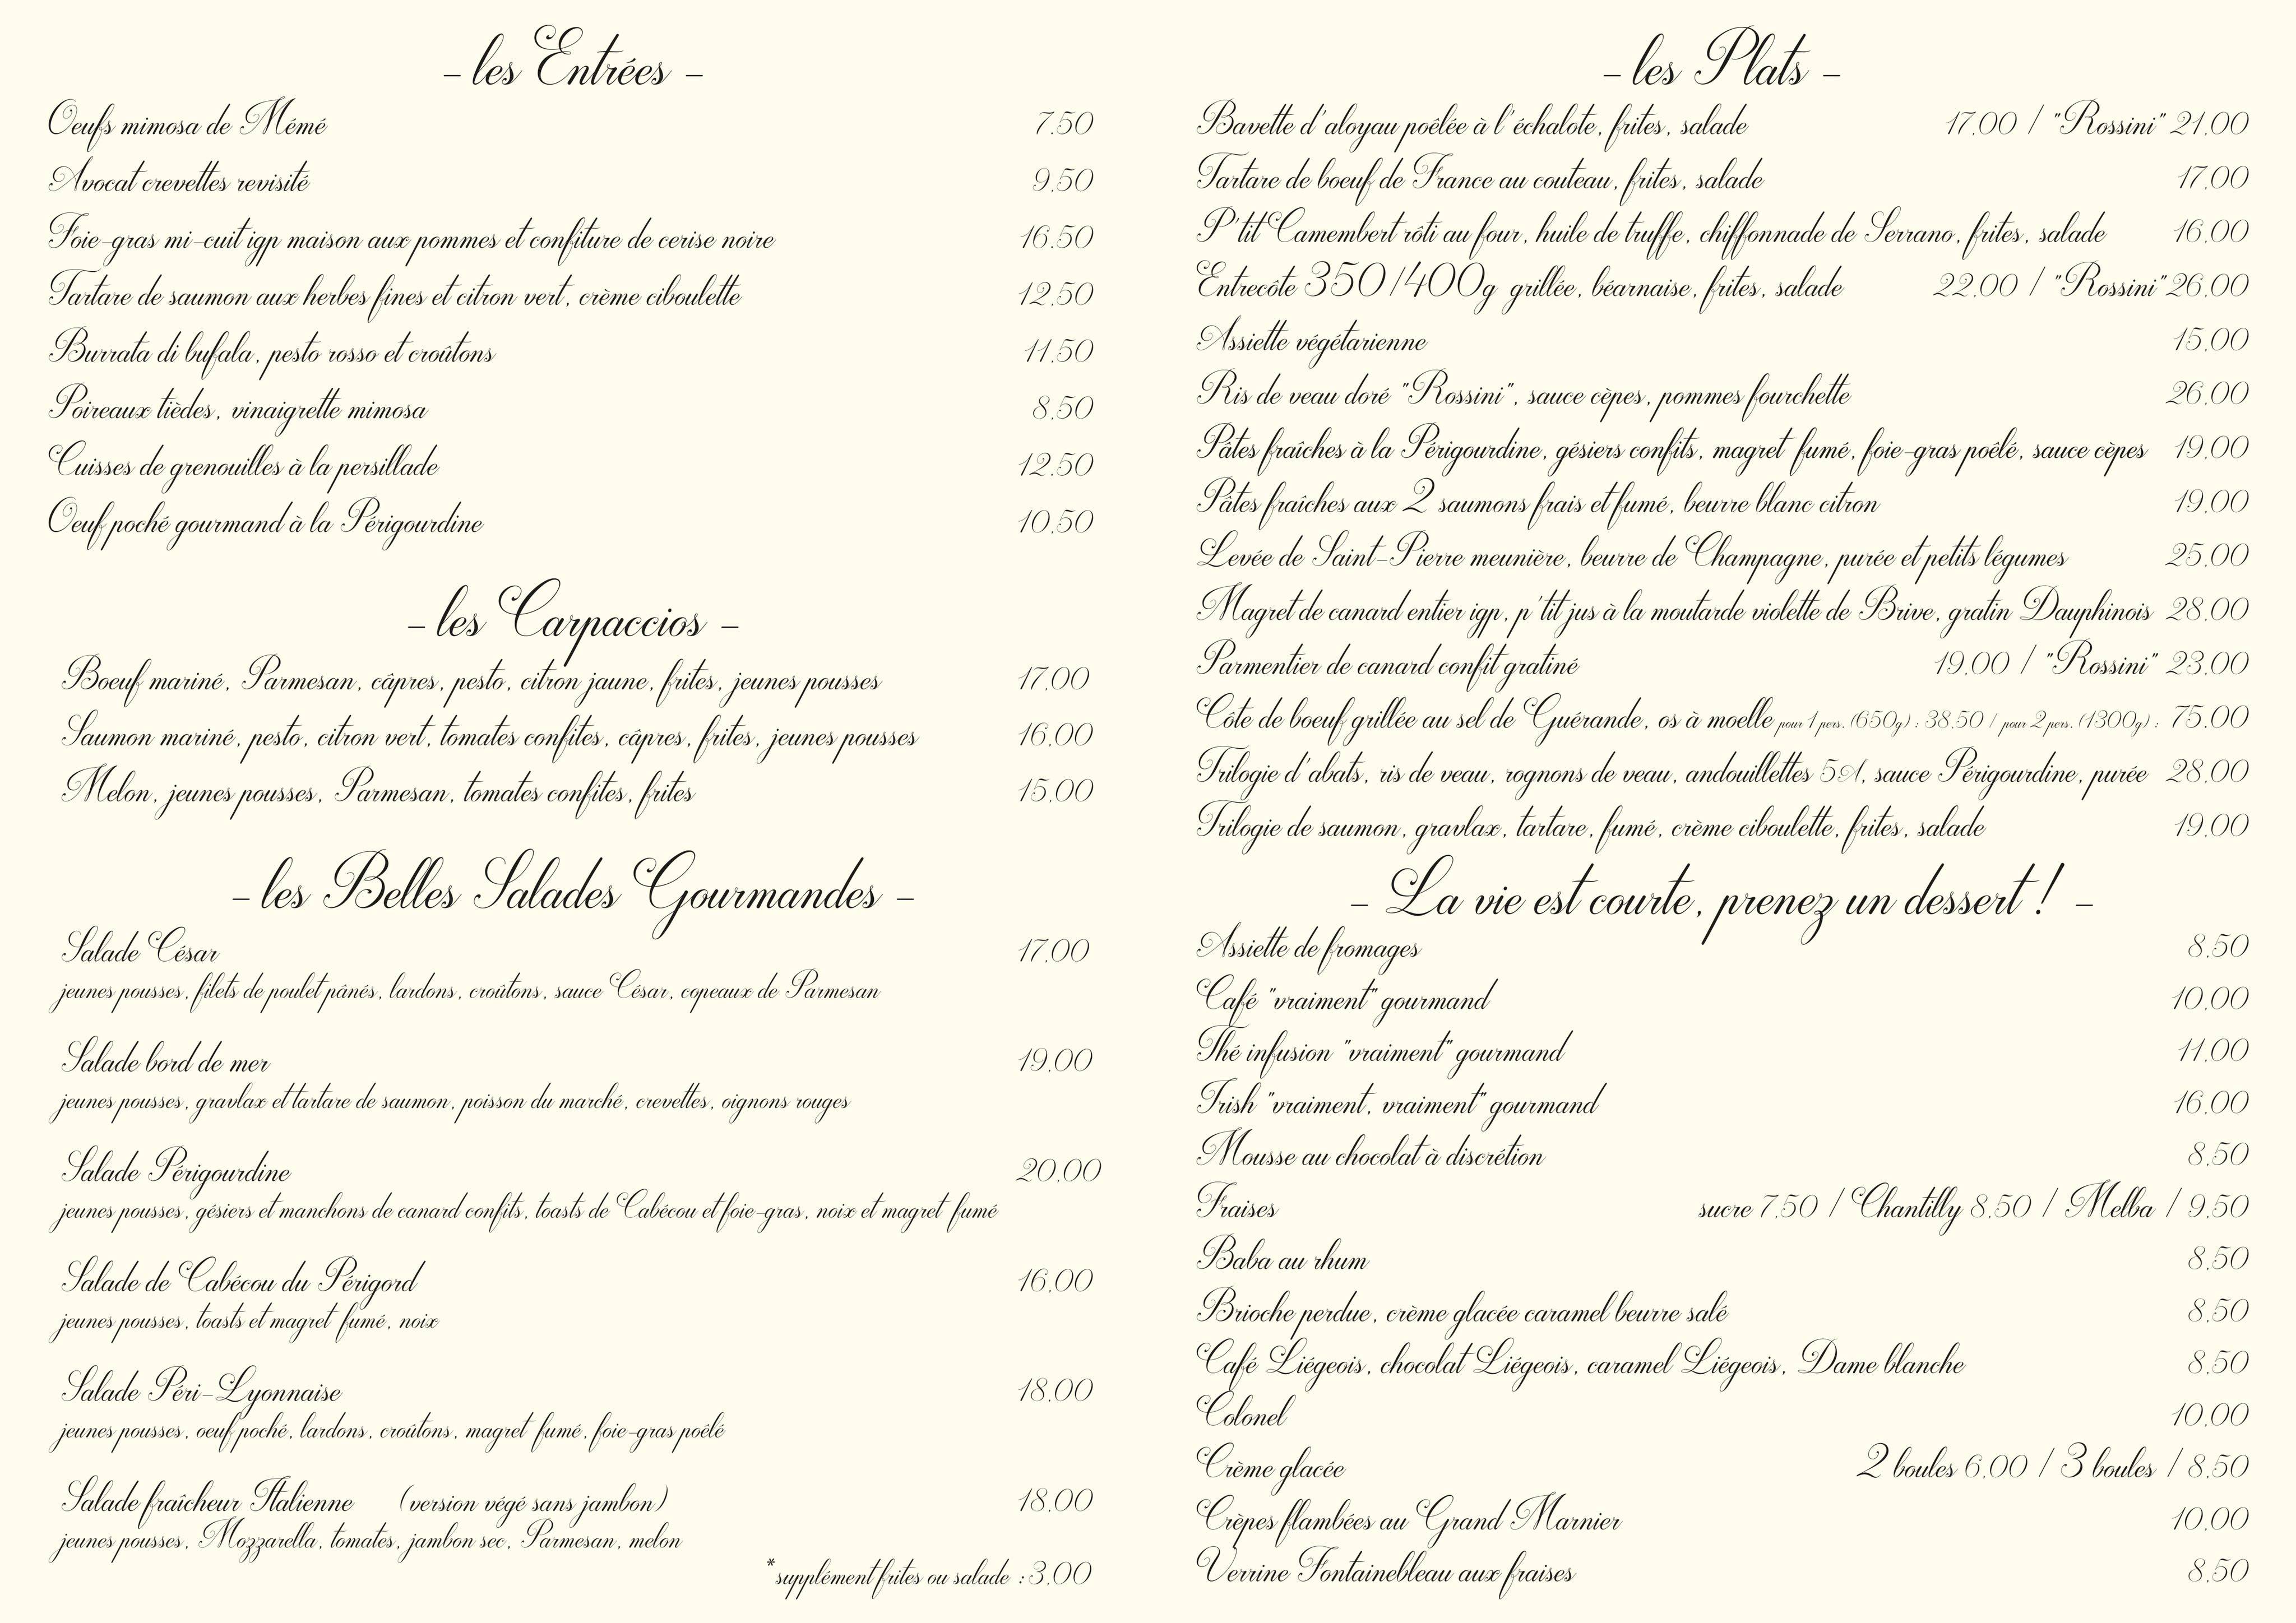 - les Entrées -
Oeufs mimosa de Mémé 7.50
Avocat crevettes revisité 9.50
Foie-gras mi-cuit igp maison aux pommes et confiture de cerise noire 16.50
Tartare de saumon aux herbes fines et citron vert, crème ciboulette 12.50
Burrata di bufala, pesto rosso et croûtons 11.50
Poireaux tièdes, vinaigrette mimosa 8.50
Cuisses de grenouilles à la persillade 12.50
Oeuf poché gourmand à la Périgourdine 10.50
- les Carpaccios -
Boeuf mariné, Parmesan, câpres, pesto, citron jaune, frites, jeunes pousses 17.00
Saumon mariné, pesto, citron vert, tomates confites, câpres, frites, jeunes pousses 16.00
Melon, jeunes pousses, Parmesan, tomates confites, frites 15.00
- les Belles Salades Gourmandes -
Salade César 17.00
jeunes pousses, filets de poulet pânés, lardons, croûtons, sauce César, copeaux de Parmesan
Salade bord de mer 19.00
jeunes pousses, gravlax et tartare de saumon, poisson du marché, crevettes, oignons rouges
Salade Périgourdine 20.00
jeunes pousses, gésiers et manchons de canard confits, toasts de Cabécou et foie-gras, noix et magret fumé
Salade de Cabécou du Périgord 16.00
jeunes pousses, toasts et magret fumé, noix
Salade Péri-Lyonnaise 18.00
jeunes pousses, oeuf poché, lardons, croûtons, magret fumé, foie-gras poêlé
Salade fraîcheur Italienne (version végé sans jambon) 18.00
jeunes pousses, Mozzarella, tomates, jambon sec, Parmesan, melon
*supplément frites ou salade : 3.00
- les Plats -
Bavette d'aloyau poêlée à l'échalote, frites, salade 17.00 / "Rossini" 21.00
Tartare de boeuf de France au couteau, frites, salade 17.00
P'tit Camembert rôti au four, huile de truffe, chiffonnade de Serrano, frites, salade 16.00
Entrecôte 350/400g grillée, béarnaise, frites, salade 22.00 / "Rossini" 26.00
Assiette végétarienne 15.00
Ris de veau doré "Rossini", sauce cèpes, pommes fourchette 26.00
Pâtes fraîches à la Périgourdine, gésiers confits, magret fumé, foie-gras poêlé, sauce cèpes 19.00
Pâtes fraîches aux 2 saumons frais et fumé, beurre blanc citron 19.00
Levée de Saint-Pierre meunière, beurre de Champagne, purée et petits légumes 25.00
Magret de canard entier igp, p'tit jus à la moutarde violette de Brive, gratin Dauphinois 28.00
Parmentier de canard confit gratiné 19.00 / "Rossini" 23.00
Côte de boeuf grillée au sel de Guérande, os à moelle pour 1 pers. (650g) : 38.50 / pour 2 pers. (1300g) : 75.00
Trilogie d'abats, ris de veau, rognons de veau, andouillettes 5A, sauce Périgourdine, purée 28.00
Trilogie de saumon, gravlax, tartare, fumé, crème ciboulette, frites, salade 19.00
- La vie est courte, prenez un dessert ! -
Assiette de fromages 8.50
Café "vraiment" gourmand 10.00
Thé infusion "vraiment" gourmand 11.00
Irish "vraiment, vraiment" gourmand 16.00
Mousse au chocolat à discrétion 8.50
Fraises sucre 7.50 / Chantilly 8.50 / Melba / 9.50
Baba au rhum 8.50
Brioche perdue, crème glacée caramel beurre salé 8.50
Café Liégeois, chocolat Liégeois, caramel Liégeois, Dame blanche 8.50
Colonel 10.00
Crème glacée 2 boules 6.00 / 3 boules / 8.50
Crèpes flambées au Grand Marnier 10.00
Verrine Fontainebleau aux fraises 8.50